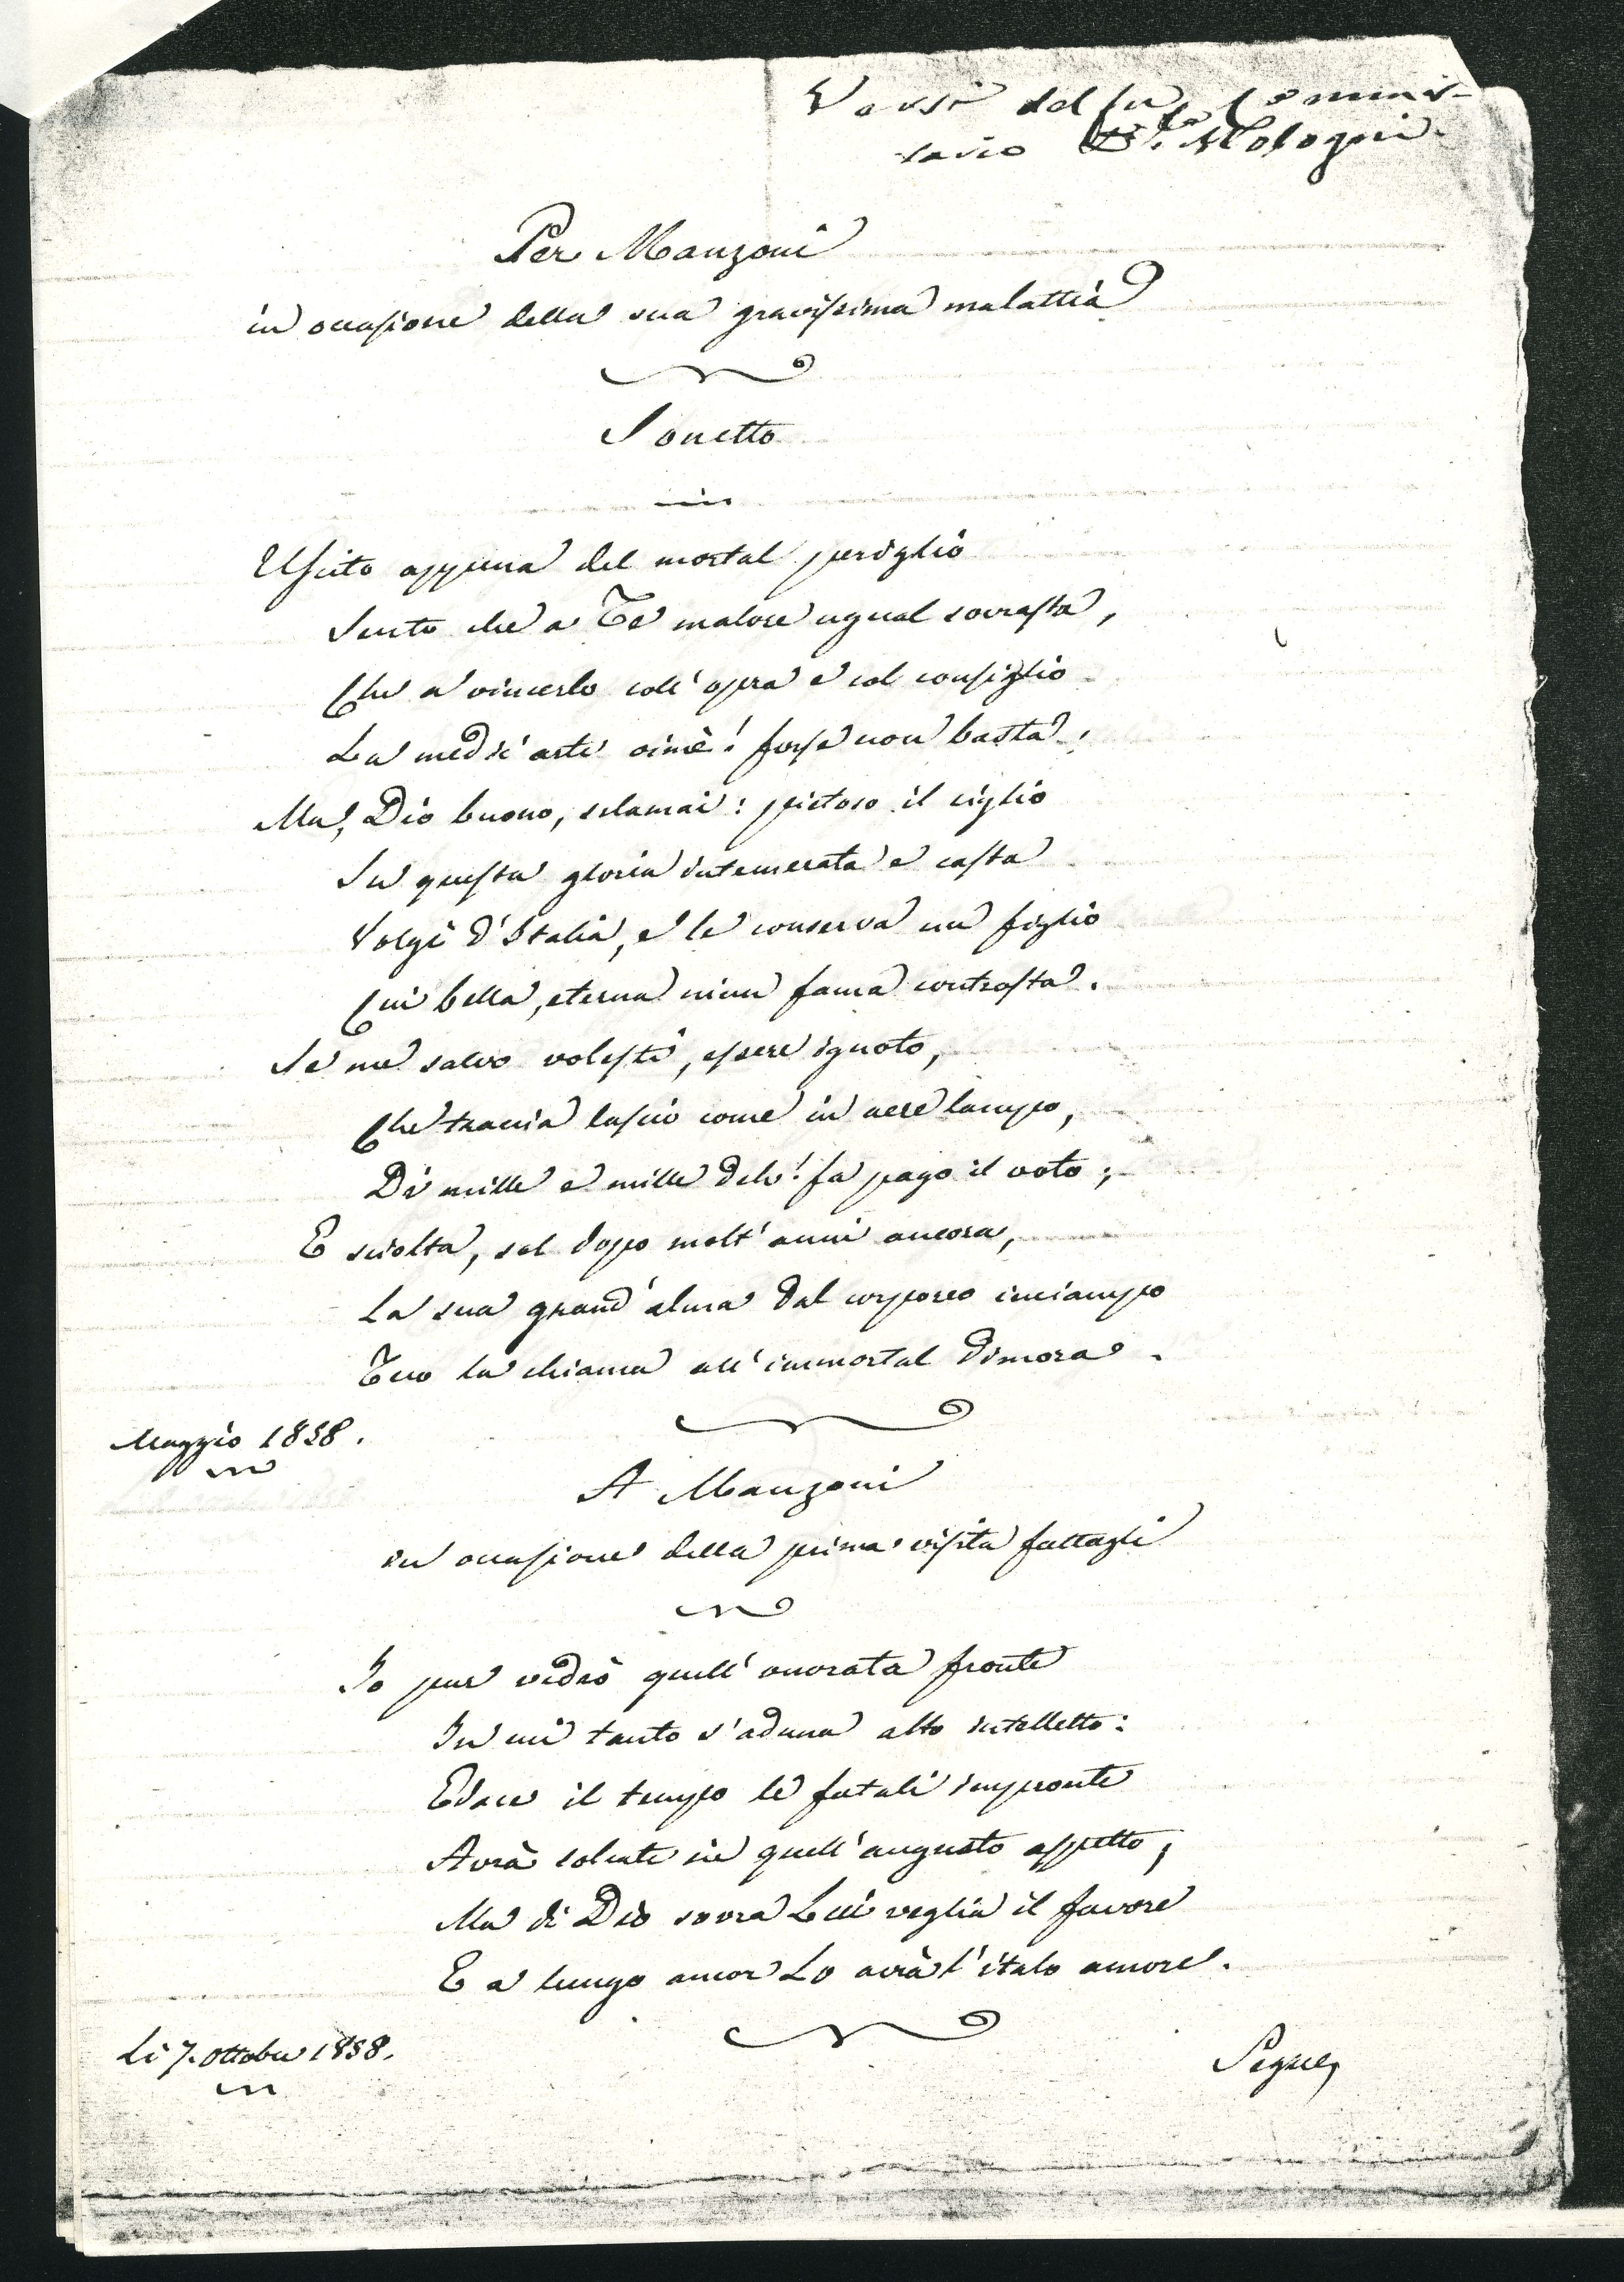 Versi del fu Commis-
sario Dr. Mologni.
Per Manzoni
in occasione della sua gravissima malattia
Sonetto
Uscito appena del mortal periglio
Sento che a Te malore ugual sovrasta,
Che a vincerlo coll'opra e col consiglio
La medic'arte oimè! forse non basta;
Ma, Dio buono, sclamai: pietoso il ciglio
Su questa gloria intemerata e casta
Volgi d'Italia, e le conserva un figlio
Cui bella, eterna niun fama contrasta.
Se me salvo volesti, essere ignoto,
Che traccia lascio come in aere lampo,
Di mille e mille deh! fa pago il voto;
E sciolta, sol dopo molt'anni ancora,
La sua grand'alma dal corporeo inciampo
Teco la chiama all'immortal dimora.
Maggio 1858.
A Manzoni
in occasione della prima visita fattagli
Io pur vedrò quell'onorata fronte
In cui tanto s'aduna alto intelletto:
Edace il tempo le fatali impronte
Avrà solcate in quell'augusto aspetto;
Ma di Dio sovra Lui veglia il favore
E a lungo ancor Lo avrà l'italo amore.
Li 7. Ottobre 1858.
Segue,